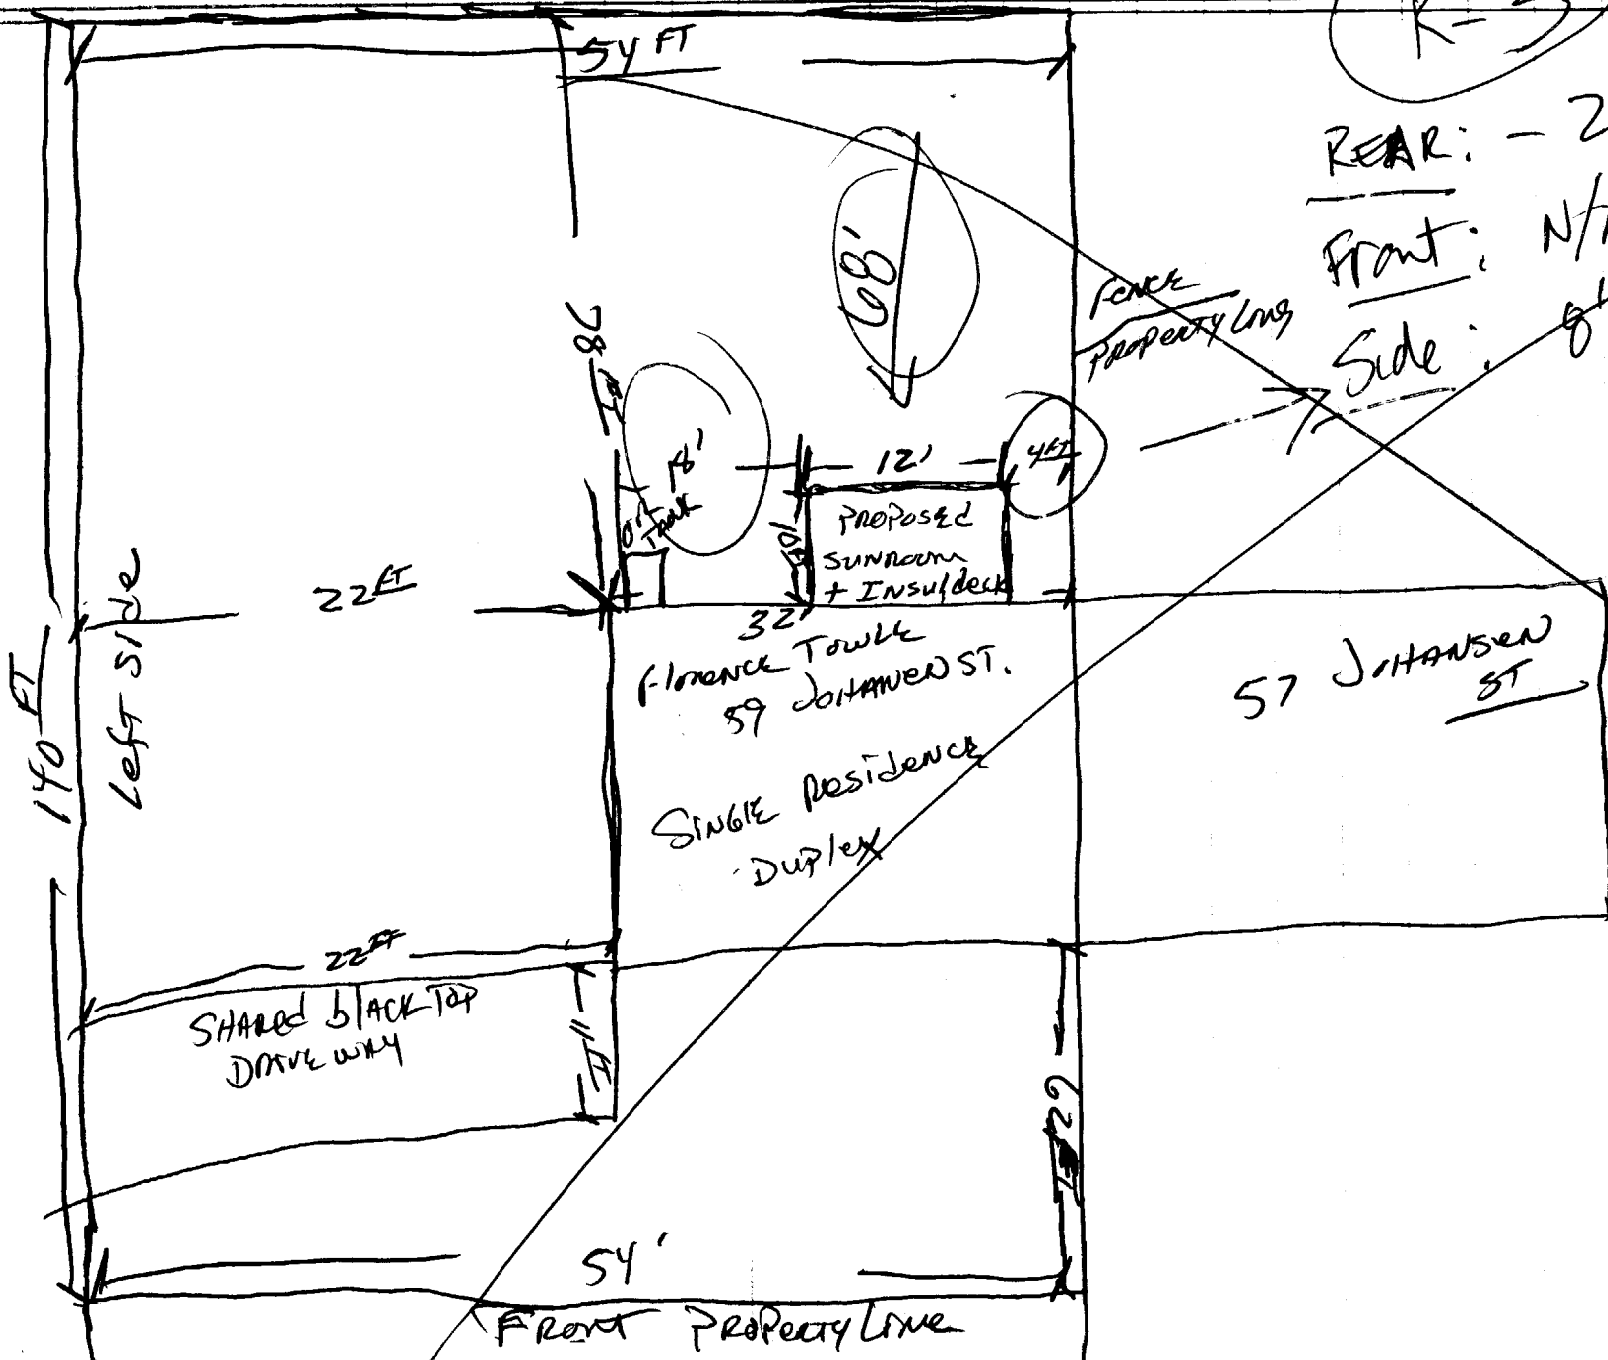 R-3
54 FT
REAR: - 2
Front: N/A
Side: 8'
68'
Fence
Property Line
78 FT
18'
12'
4 FT
Proposed
sunroom
+ Insuldeck
10 FT
22 FT
32'
140 FT
Left Side
Florence Towle
59 Johansen ST.
57 Johansen
ST
Single Residence
Duplex
22 FT
Shared blacktop
Driveway
11 FT
29 FT
54'
Front Property Line